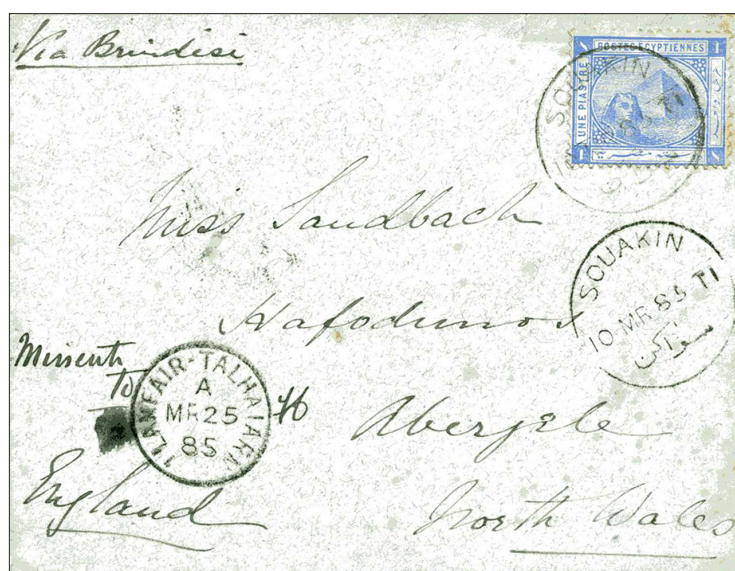 Via Brindisi
POSTES EGYPTIENNES
UNE PIASTRE
SOUAKIN
Miss Sandbach
SOUAKIN
10 MR 85 T1
سواكن
Hafodunos
Missent
to
LLANFAIR-TALHAIARN
A
MR 25
85
Abergele
England
North Wales